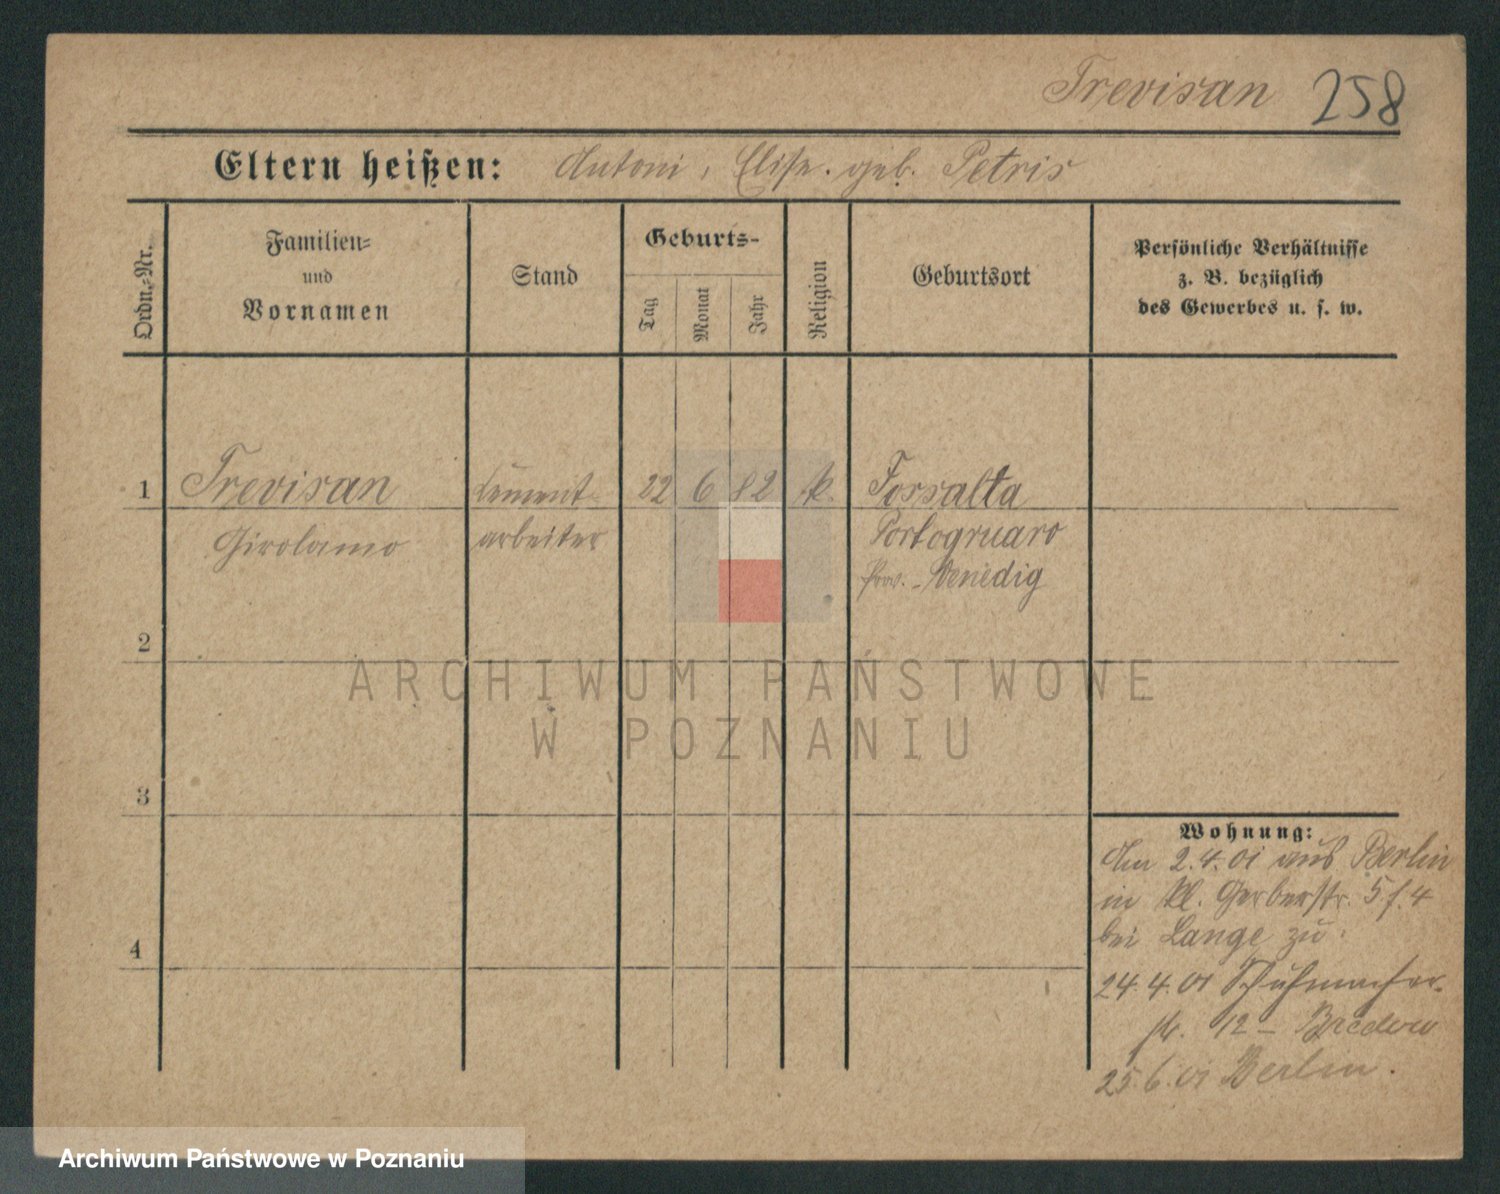 Trevisan 258
Eltern heißen: Antoni, Elise. geb. Petris
Ordn.-Nr.
Familien-
und
Vornamen
Stand
Geburts-
Tag
Monat
Jahr
Religion
Geburtsort
Persönliche Verhältnisse
z. B. bezüglich
des Gewerbes u. s. w.
1 Trevisan Cement- 22 6 82 k. Fossalta
Girolamo arbeiter Portogruaro
Prov. Venedig
2
3
4
Wohnung:
Am 2.4.01 aus Berlin
in Kl. Gerberstr. 5 f. 4
bei Lange zu.
24.4.01 Schuhmacher-
str. 12 - Bredow
25.6.01 Berlin.
ARCHIWUM PAŃSTWOWE
W POZNANIU
Archiwum Państwowe w Poznaniu